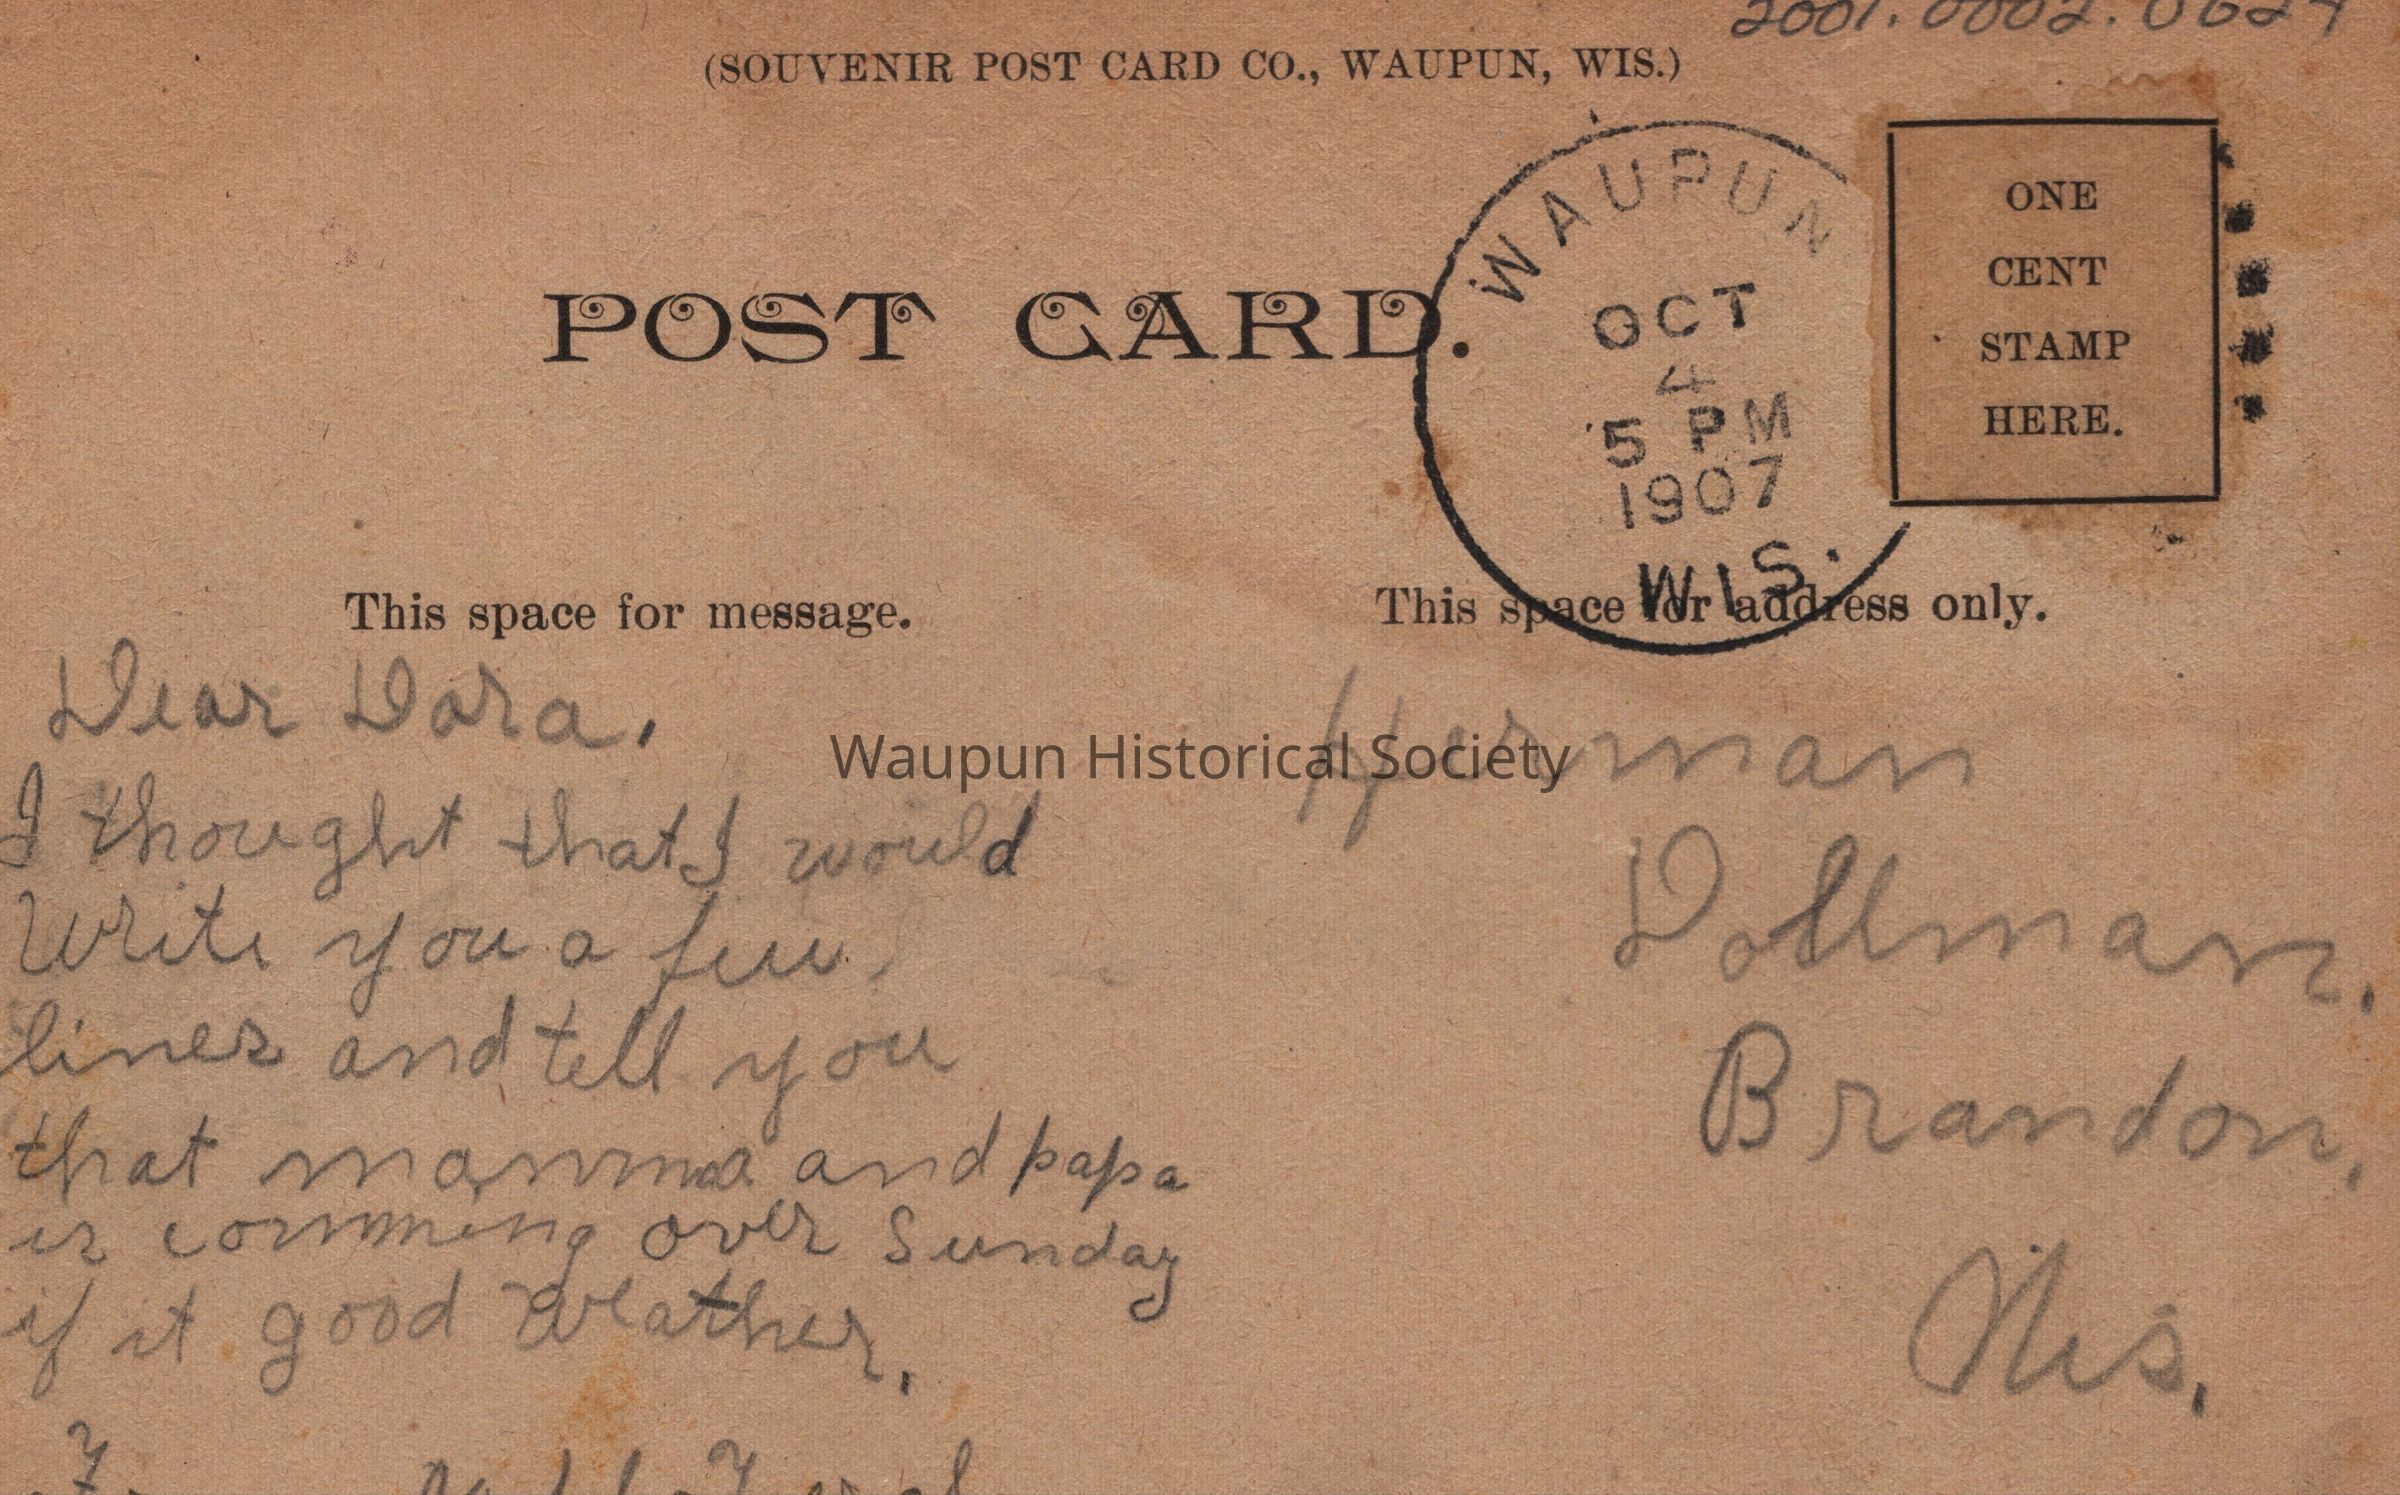 2001.0002.0624
(SOUVENIR POST CARD CO., WAUPUN, WIS.)
POST CARD.
WAUPUN
OCT
4
5 PM
1907
WIS.
ONE
CENT
STAMP
HERE.
This space for message.
This space for address only.
Dear Dora.
I thought that I would
Write you a few
lines and tell you
that mamma and papa
is comming over Sunday
if it good Weather.
Herman
Dollman.
Brandon.
Wis.
Waupun Historical Society